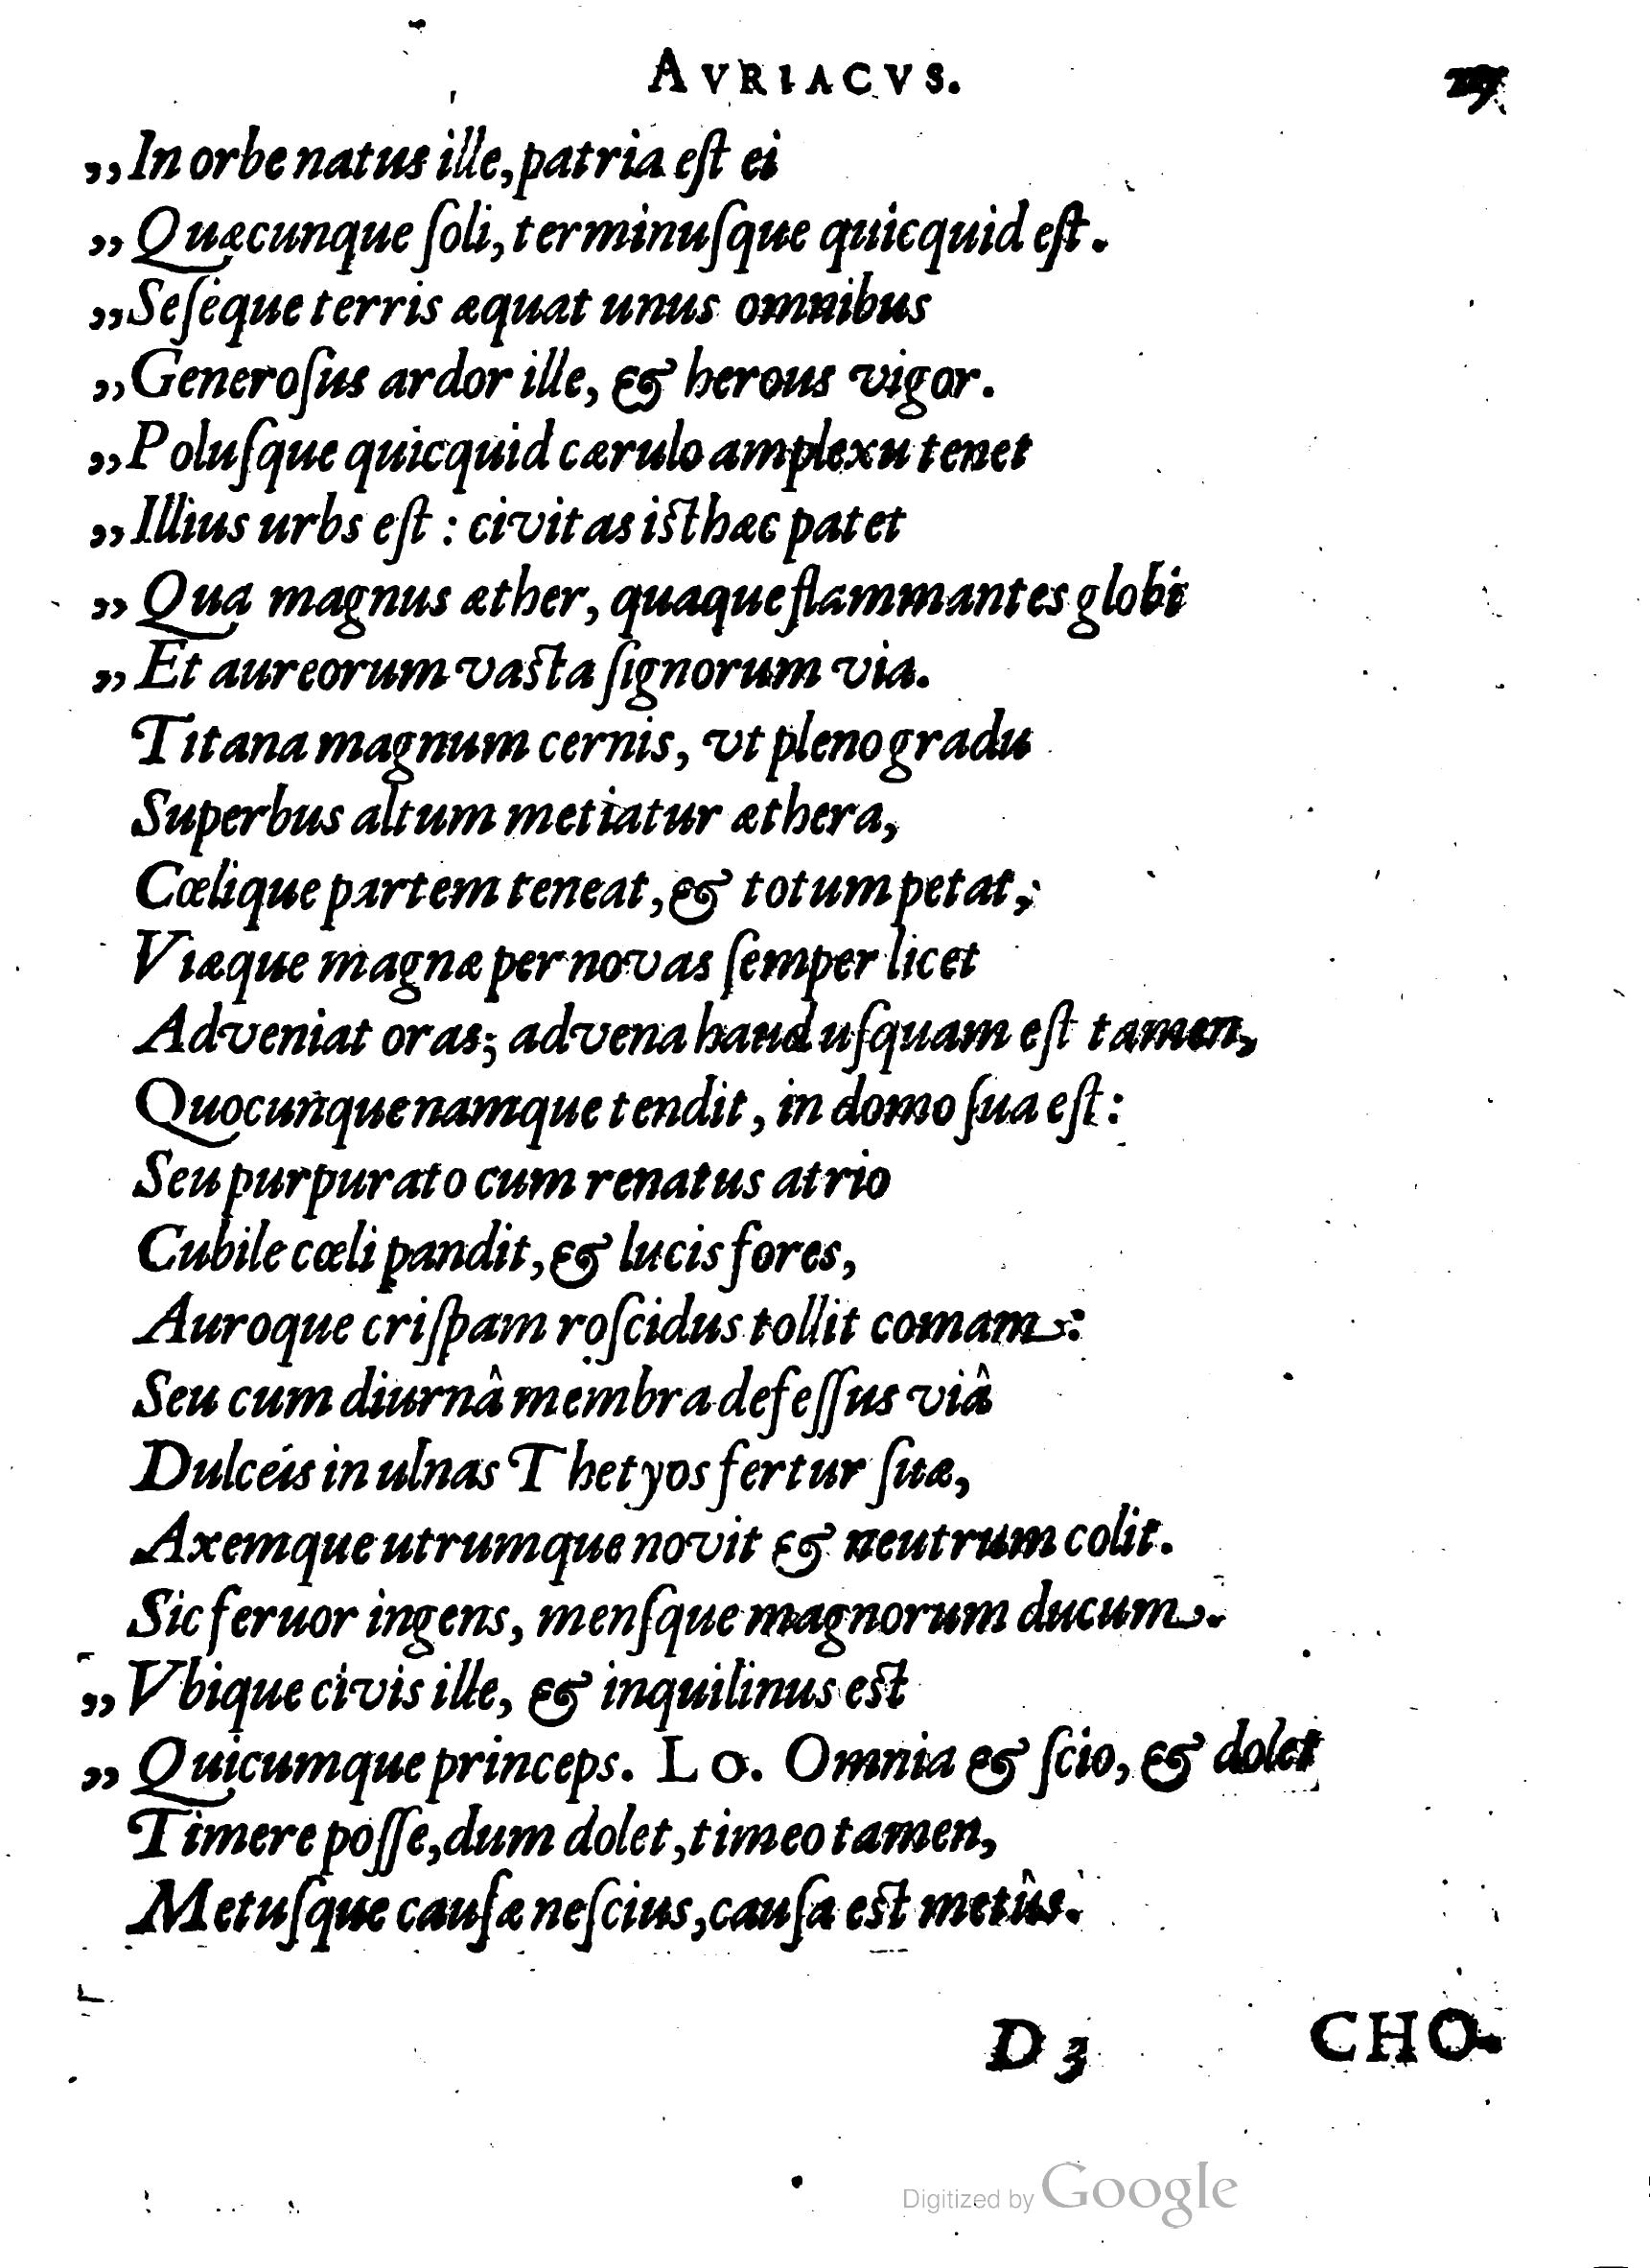 AVRIACVS.
„In orbe natus ille, patria est ei
„Quæcunque ſoli, terminuſque quicquid eſt.
„Seſeque terris æquat unus omnibus
„Generoſus ardor ille, & herous vigor.
„Poluſque quicquid cærulo amplexu tenet
„Illius urbs eſt: civitas iſthæc patet
„Qua magnus æther, quaque flammantes globi
„Et aureorum vaſta ſignorum via.
Titana magnum cernis, vt pleno gradu
Superbus altum metiatur æthera,
Cœlique partem teneat, & totum petat;
Viæque magnæ per novas ſemper licet
Adveniat oras; advena haud uſquam eſt tamen,
Quocunque namque tendit, in domo ſua eſt:
Seu purpurato cum renatus atrio
Cubile cœli pandit, & lucis fores,
Auroque criſpam roſcidus tollit comam:
Seu cum diurnâ membra defeſſus viâ
Dulceis in ulnas Thetyos fertur ſuæ,
Axemque utrumque novit & neutrum colit.
Sic feruor ingens, menſque magnorum ducum.
„Vbique civis ille, & inquilinus eſt
„Quicumque princeps. LO. Omnia & ſcio, & dolet
Timere poſſe, dum dolet, timeo tamen,
Metuſque cauſæ neſcius, cauſa eſt metûs.
D 3 CHO-
Digitized by Google